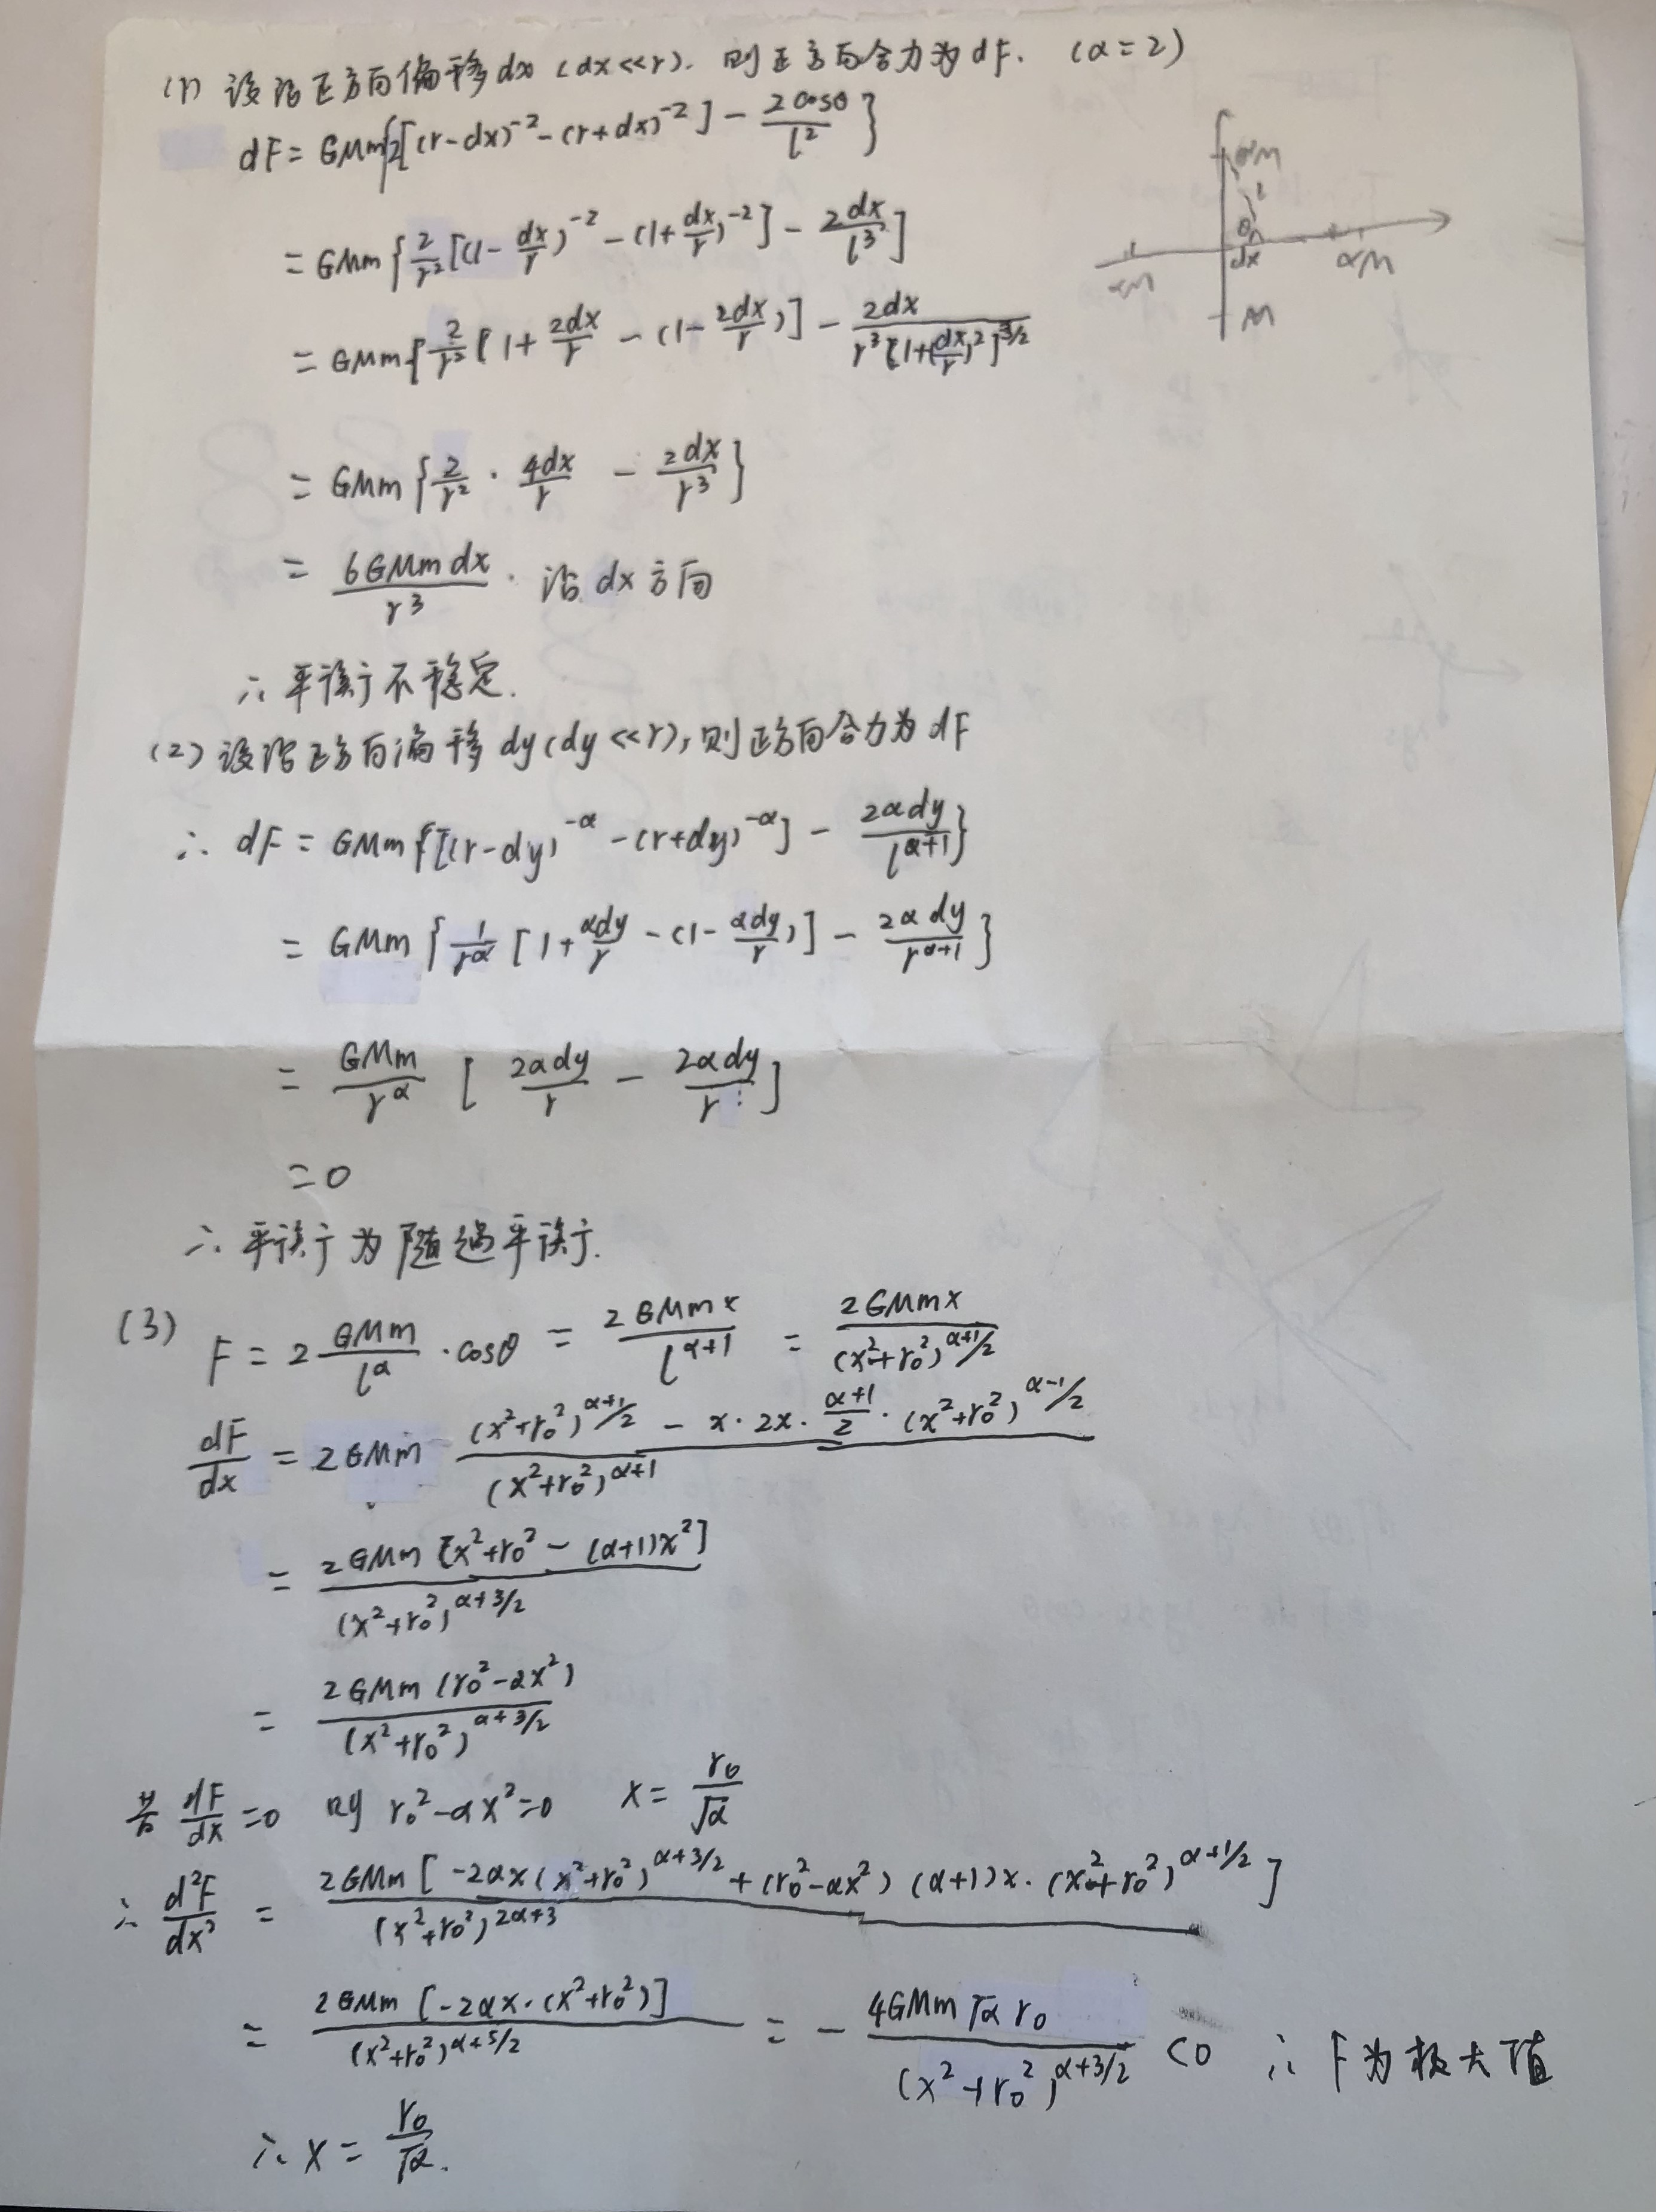 (1) 设沿正方向偏移dx (dx≪r). 则正方向合力为dF. (α=2)
dF = GMm{2[(r-dx)^{-2} - (r+dx)^{-2}] - \frac{2cosθ}{l^2}}
= GMm{\frac{2}{r^2}[(1-\frac{dx}{r})^{-2} - (1+\frac{dx}{r})^{-2}] - \frac{2dx}{l^3}]
= GMm{\frac{2}{r^2}[1+\frac{2dx}{r} - (1-\frac{2dx}{r})] - \frac{2dx}{r^3[1+(\frac{dx}{r})^2]^{3/2}}
= GMm{\frac{2}{r^2}·\frac{4dx}{r} - \frac{2dx}{r^3}}
= \frac{6GMmdx}{r^3}. 沿dx方向
∴平衡不稳定.
αM
l
θ
dx
αM
αM
M
(2) 设沿正方向偏移dy(dy≪r), 则正方向合力为dF
∴ dF = GMm{[(r-dy)^{-α} - (r+dy)^{-α}] - \frac{2αdy}{l^{α+1}}}
= GMm{\frac{1}{r^α}[1+\frac{αdy}{r} - (1-\frac{αdy}{r})] - \frac{2αdy}{r^{α+1}}}
= \frac{GMm}{r^α}[\frac{2αdy}{r} - \frac{2αdy}{r}]
=0
∴平衡为随遇平衡.
(3) F = 2\frac{GMm}{l^α}·cosθ = \frac{2GMmx}{l^{α+1}} = \frac{2GMmx}{(x^2+r_0^2)^{α+1/2}}
\frac{dF}{dx} = 2GMm \frac{(x^2+r_0^2)^{α+1/2} - x·2x·\frac{α+1}{2}·(x^2+r_0^2)^{α-1/2}}{(x^2+r_0^2)^{α+1}}
= \frac{2GMm[x^2+r_0^2-(α+1)x^2]}{(x^2+r_0^2)^{α+3/2}}
= \frac{2GMm(r_0^2-αx^2)}{(x^2+r_0^2)^{α+3/2}}
若\frac{dF}{dx}=0 则 r_0^2-αx^2=0 x=\frac{r_0}{\sqrt{α}}
∴ \frac{d^2F}{dx^2} = \frac{2GMm[-2αx(x^2+r_0^2)^{α+3/2}+(r_0^2-αx^2)(α+1)x·(x^2+r_0^2)^{α+1/2}]}{(x^2+r_0^2)^{2α+3}}
= \frac{2GMm[-2αx·(x^2+r_0^2)]}{(x^2+r_0^2)^{α+5/2}} = -\frac{4GMm\sqrt{α}r_0}{(x^2+r_0^2)^{α+3/2}} <0 ∴F为极大值
∴x=\frac{r_0}{\sqrt{α}}.